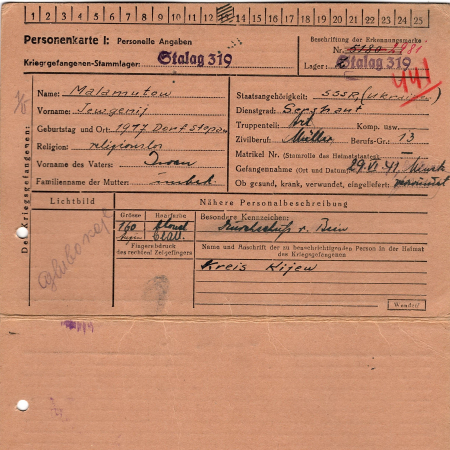 1 2 3 4 5 6 7 8 9 10 11 12 13 14 15 16 17 18 19 20 21 22 23 24 25
Personenkarte I: Personelle Angaben
Kriegsgefangenen-Stammlager: Stalag 319
Beschriftung der Erkennungsmarke
Nr.
Lager: Stalag 319
441
Des Kriegsgefangenen:
Name: Malamutow
Vorname: Jewgenij
Geburtstag und Ort: 1917 Dorf
Religion: religionslos
Vorname des Vaters: Iwan
Familienname der Mutter: unbek.
Staatsangehörigkeit: SSSR (Ukrainer)
Dienstgrad: Sergeant
Truppenteil: Art. Komp. usw.
Zivilberuf: Müller Berufs-Gr.: 13
Matrikel Nr. (Stammrolle des Heimatstaates): —
Gefangennahme (Ort und Datum): 29.VI.41 Minsk
Ob gesund, krank, verwundet, eingeliefert: verwundet
Lichtbild
Nähere Personalbeschreibung
Grösse
Haarfarbe
160
blond
Besondere Kennzeichen:
Durchschuß r. Bein
Fingerabdruck
des rechten! Zeigefingers
Name und Anschrift der zu benachrichtigenden Person in der Heimat
des Kriegsgefangenen
Kreis Kijew
Wenden!